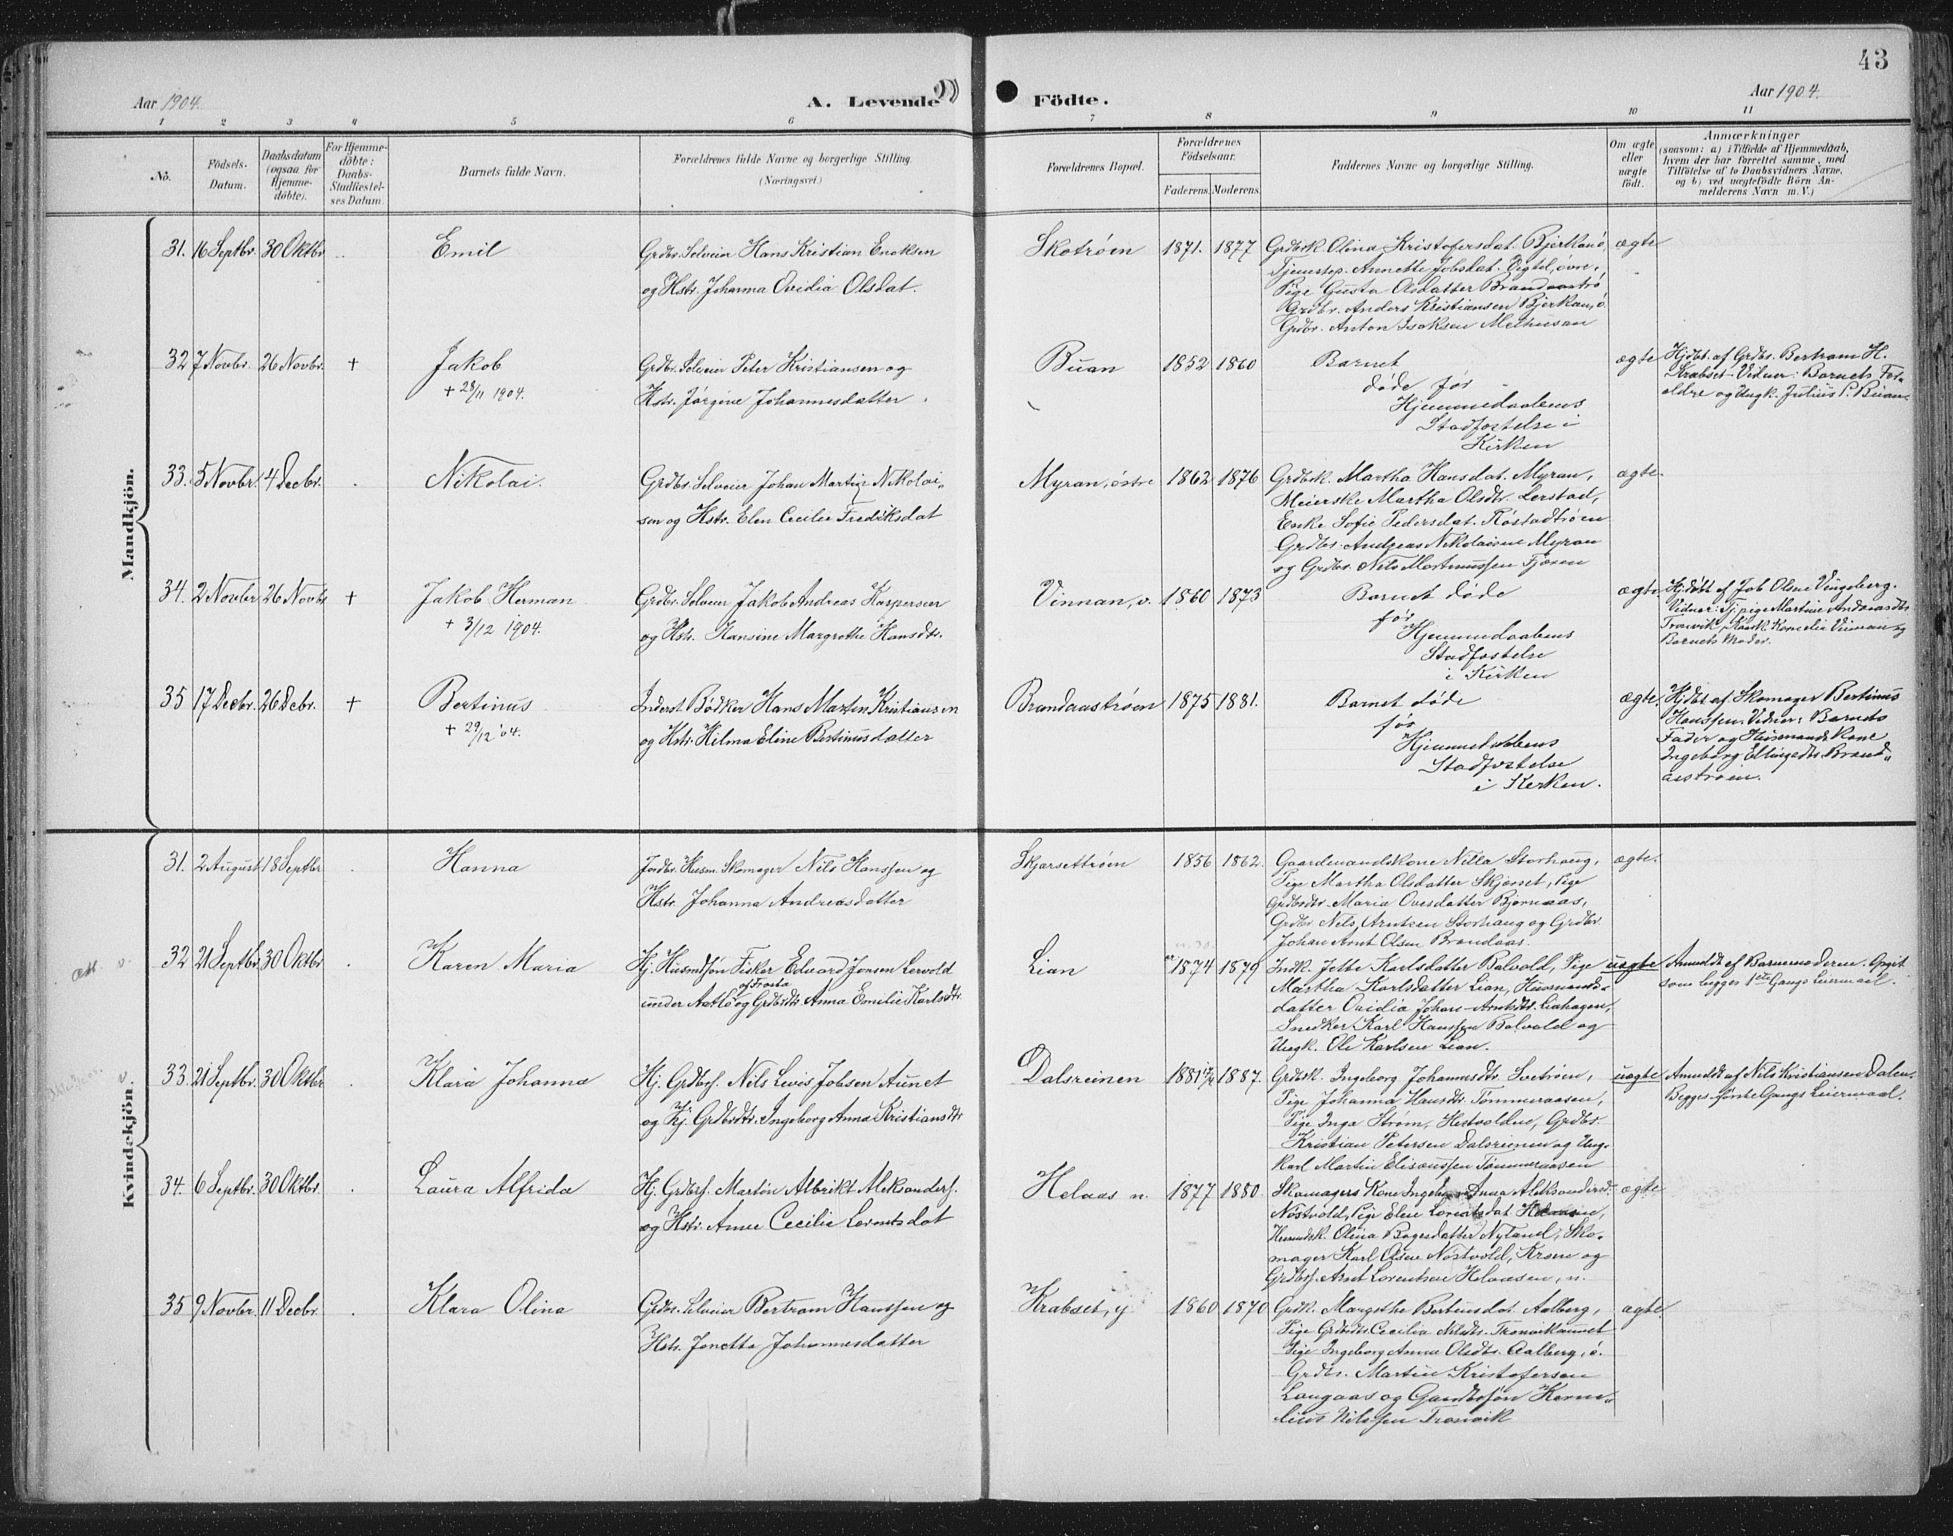 43
Aar 1904.
A. Levende
Fødte.
Aar 1904.
1 2 3 4 5 6 7 8 9 10 11
No.
Fødsels-
Datum.
Daabsdatum
(ogsaa for
Hjemme-
døbte).
For Hjemme-
døbte:
Daabs-
Stadfæstel-
ses Datum
Barnets fulde Navn.
Forældrenes fulde Navne og borgerlige Stilling.
(Næringsvei.)
Forældrenes Bopæl.
Forældrenes
Fødselsaar.
Faderens. Moderens.
Faddernes Navne og borgerlige Stilling.
Om ægte
eller
uægte
født.
Anmærkninger
(saasom: a) i Tilfælde af Hjemmedaab,
hvem der har forrettet samme, med
Tilføielse af to Daabsvidners Navne,
og b) ved uægtefødte Børn An-
melderens Navn m. V.)
Mandkjön.
31. 16 Septbr. 30 Oktbr. Emil
Grdbr. Selveier Hans Kristian Enoksen
og Hstr. Johanna Ovidia Olsdat.
Skotrøen 1871. 1877
Grdbrk. Olina Kristofersdat. Bjerkan, ø
Tjenestep. Annette Jobsdat. Vigtel, øvre,
Pige Gusta Olsdatter Brandaastrø
Grdbr. Anders Kristiansen Bjerkan, ø
Grdbr. Anton Isaksen Melhusan
ægte
32 7 Novbr. 26 Novbr. + Jakob
+ 28/11 1904.
Grdbr. Selveier Peter Kristiansen og
Hstr. Jørgine Johannesdatter.
Buan 1852 1860
Barnet
døde før
Hjemmedaabens
Stadfæstelse i
Kirken
ægte
Hjdbt. af Grdbr. Bertram H.
Krabset. Vidner: Barnets For-
ældre og Ungk. Julius P. Buan
33. 5 Novbr. 4 Decbr. Nikolai.
Grdbr. Selveier Johan Martin Nikolai-
sen og Hstr. Elen Cecilie Fredriksdat
Myran, østre 1862 1876
Grdbrk. Martha Hansdat. Myran,
Meierske Martha Olsdtr. Lerstad,
Enke Sofie Pedersdat. Røstadtrøen
Grdbr. Andreas Nikolaisen Myran
og Grdbr. Nils Martinussen Fjæren
ægte.
34. 2 Novbr 26 Novbr + Jakob Herman
+ 3/12 1904.
Grdbr. Selveier Jakob Andreas Kaspersen
og Hstr. Hansine Margrethe Hansdtr.
Vinnan, v. 1860 1873
Barnet døde
før
Hjemmedaabens
Stadfæstelse
i Kirken
ægte
Hjdøbt af Job Olsen Vingsberg.
Vidner: Tj.pige Martine Andreasdtr
Tronvik, Kornelia Vinnan og
Barnets Moder.
35 17 Decbr. 26 Decbr. + Bertinus
+ 29/12 '04.
Inderst Bødker Hans Martin Kristiansen
og Hstr. Hilma Eline Bertinusdatter
Brandaastrøen 1875 1881.
Barnet døde
før
Hjemmedaabens
Stadfæstelse
i Kirken.
ægte.
Hjdbt af Skomager Bertinus
Hanssen. Vidner: Barnets
Fader og Husmands Kone
Ingeborg Ellingsdtr Brand-
aastrøen.
Kvindekjön.
31. 2 August 18 Septbr Hanna
Jordbr. Husm. Skomager Nils Hanssen og
Hstr. Johanna Andreasdatter
Skjersettrøen 1856 1862.
Gaardmandskone Nilla Storhaug,
Pige Martha Olsdatter Skjerset, Pige
Grdbrdtr. Maria Ovesdatter Bjørnaas,
Grdbr. Nils Arntsen Storhaug og Grdbr
Johan Arnt Olsen Brandaas.
ægte.
32 21 Septbr. 30 Oktbr. Karen Maria
Kj. Husmdsøn Fisker Edvard Jonsen Lervold
af Frosta
under Aatlo og Grdbrdtr. Anna Emilie Karlsdtr.
Lian 1874 1879
Indk. Jette Karlsdatter Balvold, Pige
Marthia Karlsdatter Lian, Husmands-
datter Ovidia Johan-Arntsdtr. Liahagen,
Snedker Karl Hanssen Balvold og
Ungk. Ole Karlsen Lian.
uægte
Anmeldt af Barnemoderen. Opgit
som begges 1ste Gangs Leiermaal.
33. 21 Septbr. 30 Oktbr Klara Johanna
Kj. Grdbrs. Nils Lewis Jobsen Aunet
og Kj. Grdbrdtr. Ingeborg Anna Kristiansdtr
Dalsreinen 1881 1887.
Grdbrk. Ingeborg Johannesdtr. Svetrøen,
Pige Johanna Hansdtr. Tømmeraasen,
Pige Inga Strøm, Hestvolden, Grdbr.
Kristian Petersen Dalsreinen og Ung-
karl Martin Eliseussen Tømmeraasen
uægte
Anmeldt af Nils Kristiansen Dalen.
Begges første Gangs Leiermaal.
34. 6 Septbr. 30 Oktbr. Laura Alfrida
Kj. Grdbrs. Martin Albrikt Aleksanders.
og Hstr. Anne Cecilie Lorentsdat
Helaas n. 1877 1880.
Skomagers Kone Ingeborg Anna Aleksandersd.
Nøstvold, Pige Eline Lorentsdat Helaasen,
Husmdsk. Olina Bogesdatter Nyland, Sko-
mager Karl Olsen Nøstvold, Kroen og
Grdbrs. Arnt Lorentsen Helaasen, n.
ægte
35 9 Novbr. 11 Decbr. Klara Olina
Grdbr. Selveier Bertram Hanssen og
Hstr. Jonetta Johannesdatter
Krabset, y 1860 1870
Grdk. Margrethe Bertinusdat. Aalberg,
Pige Grdbrdtr Cecilia Nilsdtr. Tronvikaunet
Pige Ingeborg Anna Olsdtr. Aalberg, ø.
Grdbr. Martin Kristofersen
Langaas og Gaardbrsøn Korne-
lius Nilssen Tronvik
ægte.